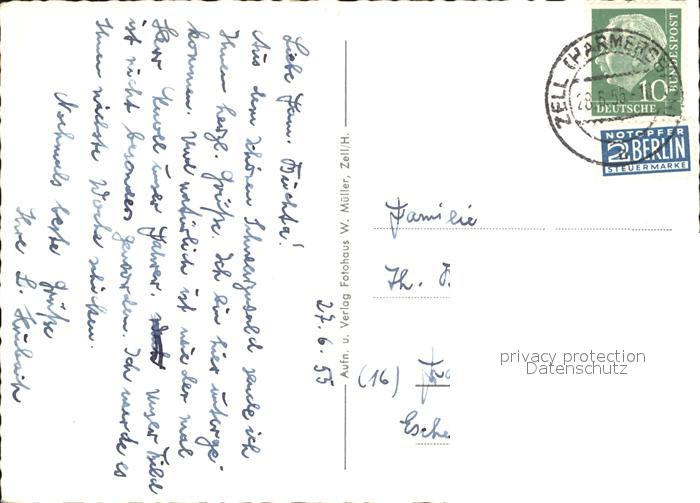 27.6.55
Liebe Fam. Büchta!
Aus dem schönen Schwarzwald sende ich
Ihnen herzl. Grüße. Ich bin hier unterge-
kommen. Und natürlich ist wieder mal
Herr unser Fahrer. Unser Bild
ist nicht besonders geworden. Ich werde es
Ihnen nächste Woche schicken.
Nochmals beste Grüße
Ihre L.
Aufn. u. Verlag Fotohaus W. Müller, Zell/H.
ZELL (HARMERSB
28.6.55
10
DEUTSCHE
BUNDESPOST
NOTOPFER
2 BERLIN
STEUERMARKE
Familie
Th.
(16)
Esche
privacy protection
Datenschutz